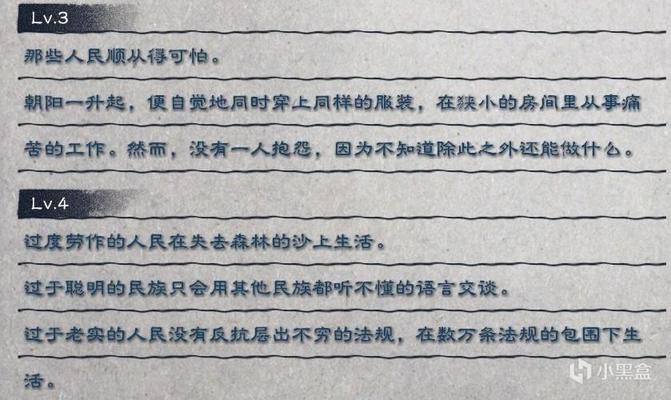 Lv.3
那些人民顺从得可怕。
朝阳一升起，便自觉地同时穿上同样的服装，在狭小的房间里从事痛
苦的工作。然而，没有一人抱怨，因为不知道除此之外还能做什么。
Lv.4
过度劳作的人民在失去森林的沙上生活。
过于聪明的民族只会用其他民族都听不懂的语言交谈。
过于老实的人民没有反抗层出不穷的法规，在数万条法规的包围下生
活。
小黑盒